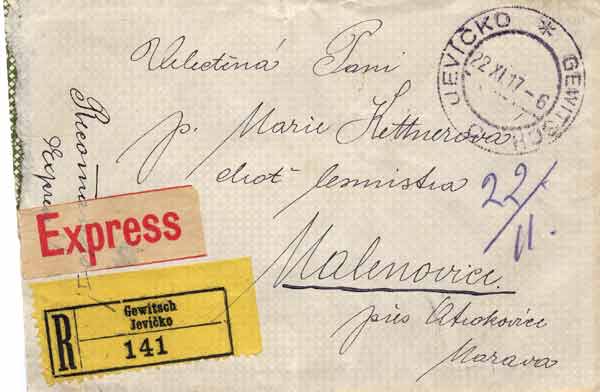 Velectěná Paní
p. Marie Kettnerova
choť lesmistra
Malenovice.
přes Otrokovice
Morava
Express
JEVÍČKO * GEWITSCH
22 XI 17-6
22/11.
Express
R
Gewitsch
Jevíčko
141